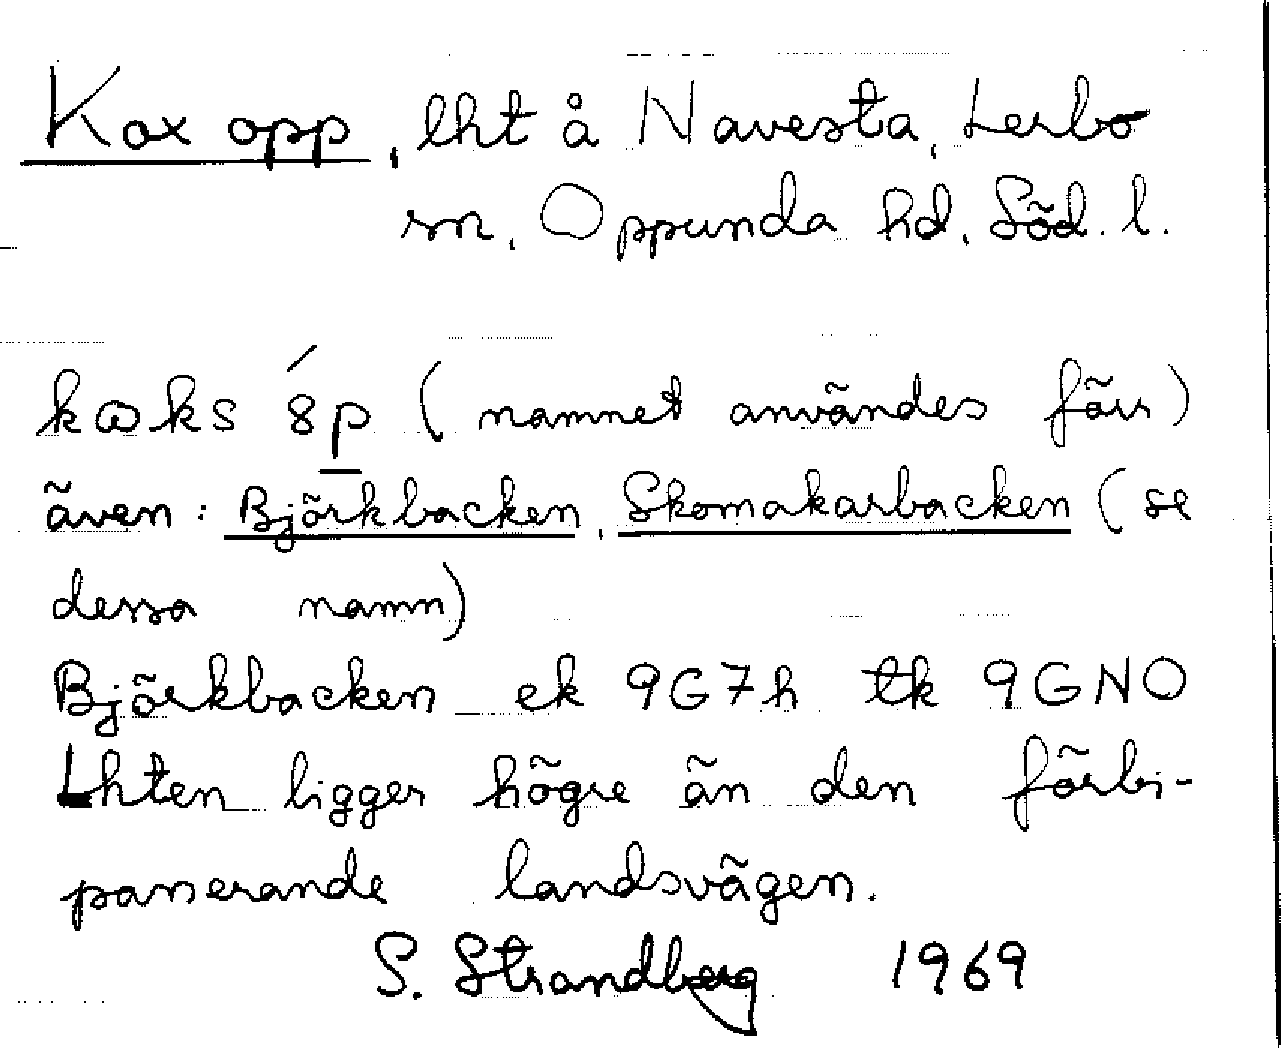 Kox opp, lht å Navesta, Lerbo
sn, Oppunda hd, Söd. l.
(namnet användes förr)
även: Björkbacken, Skomakarbacken (se
dessa namn)
Björkbacken ek 9G7h tk 9GNO
Lhten ligger högre än den förbi-
passerande landsvägen.
S. Strandberg 1969